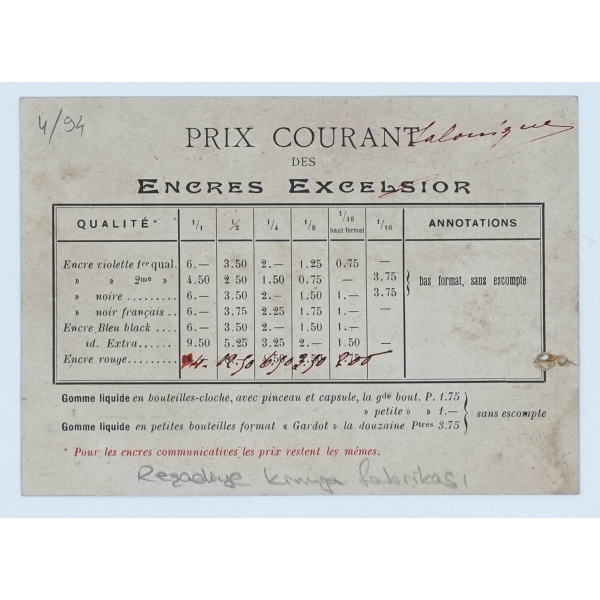 4/94
PRIX COURANT Salonique
DES
ENCRES EXCELSIOR
QUALITÉ* 1/1 1/2 1/4 1/8 1/16 haut format 1/16 ANNOTATIONS
Encre violette 1er qual. 6.— 3.50 2.— 1.25 0.75 —
» » 2me » 4.50 2 50 1.50 0.75 — 3.75 } bas format, sans escompte
» noire ......... 6.— 3.50 2.— 1.50 1.— 3.75
» noir français .. 6.— 3.75 2.25 1.75 1.— —
Encre Bleu black .... 6.— 3.50 2.— 1.50 1.—
id. Extra...... 9.50 5.25 3.25 2.— 1.50 —
Encre rouge.....
Gomme liquide en bouteilles-cloche, avec pinceau et capsule, la gde bout. P. 1.75
» petite » » 1.— } sans escompte
Gomme liquide en petites bouteilles format « Gardot » la douzaine Ptres 3.75
* Pour les encres communicatives les prix restent les mêmes.
fabrikası